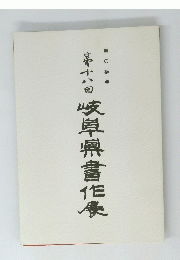 第十八回
岐阜県書作展